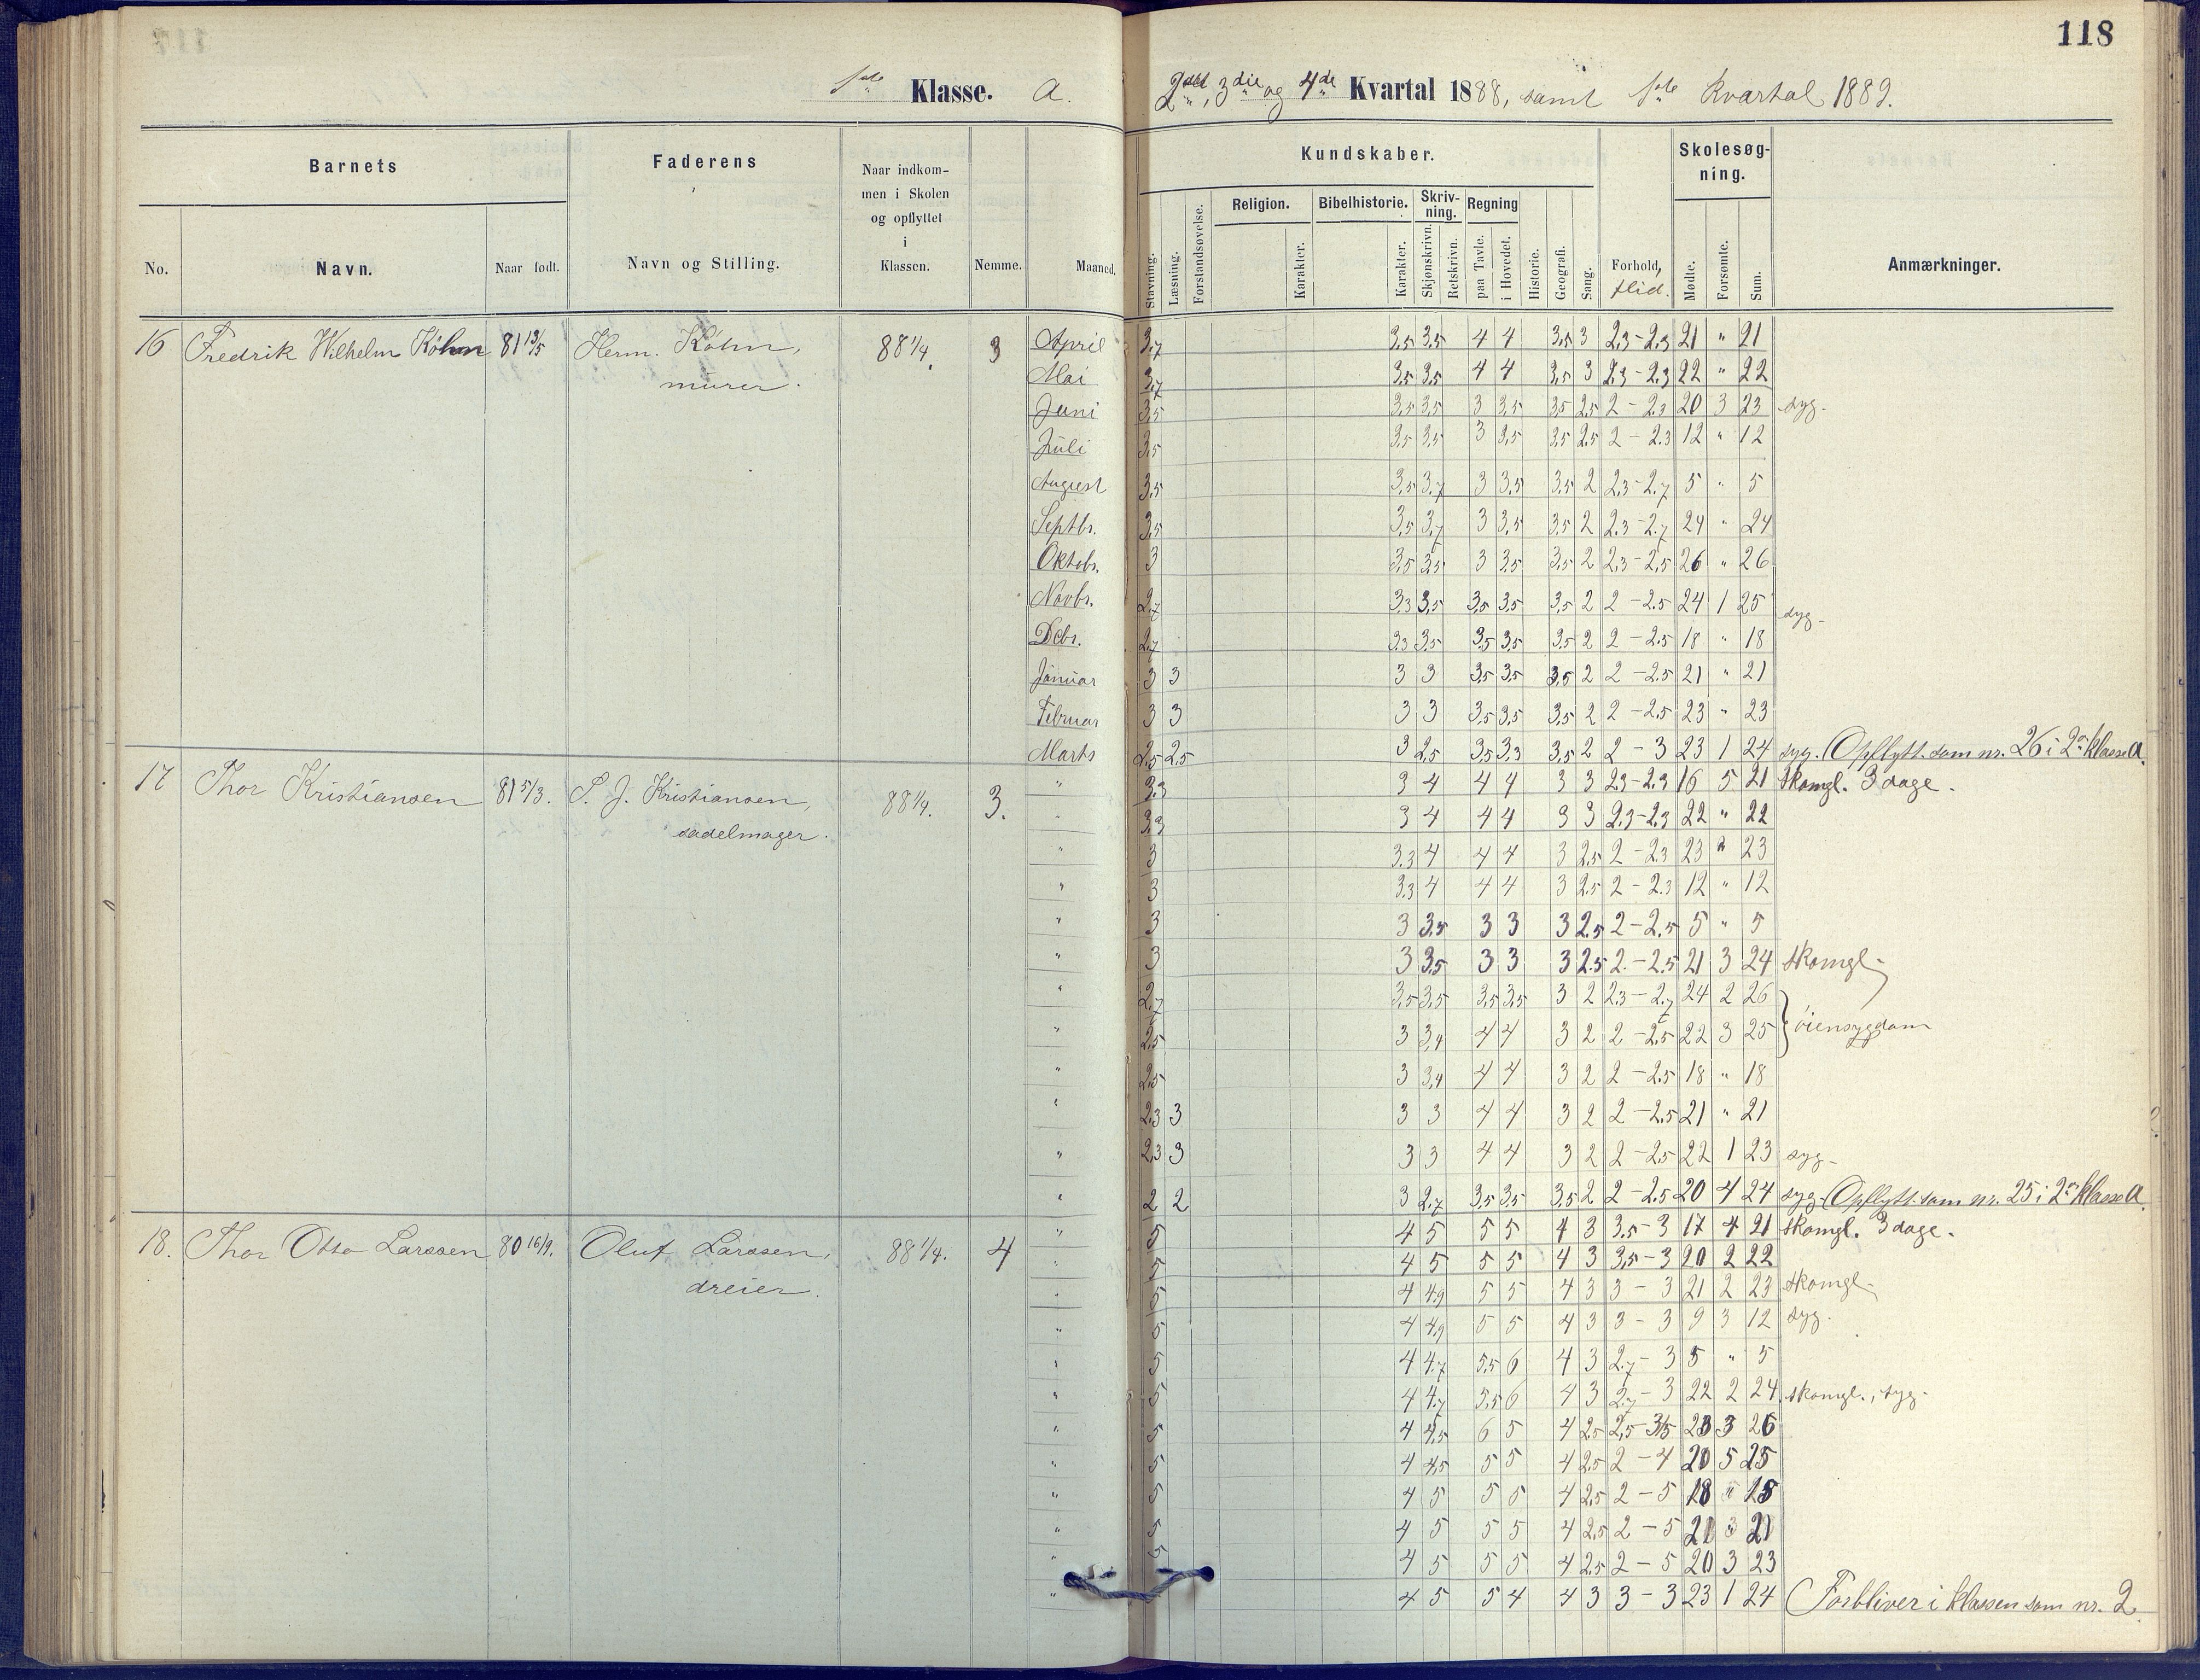 118
1ste Klasse. a. 2det, 3die og 4de Kvartal 1888, samt 1ste Kvartal 1889.
Barnets Faderens Naar indkommen i Skolen og opflyttet i Klassen. Nemme. Maaned. Kundskaber. Forhold, flid. Skolesøgning. Anmærkninger.
No. Navn. Naar født. Navn og Stilling. Stavning. Læsning. Forstandsøvelse. Religion. Karakter. Bibelhistorie. Karakter. Skrivning. Skjønskrivn. Retskrivn. Regning paa Tavle. i Hovedet. Historie. Geografi. Sang. Mødte. Forsømte. Sum.
16 Fredrik Wilhelm Köhn 81 13/5 Herm. Köhn, 88 1/4. 3 April 3,7 3,5 3,5 4 4 3,5 3 2,3-2,3 21 " 21
murer. Mai 3,7 3,5 3,5 4 4 3,5 3 2,3-2,3 22 " 22
Juni 3,5 3,5 3,5 3 3,5 3,5 2,5 2-2,3 20 3 23 syg.
Juli 3,5 3,5 3,5 3 3,5 3,5 2,5 2-2,3 12 " 12
August 3,5 3,5 3,7 3 3,5 3,5 2 2,3-2,7 5 " 5
Septbr. 3,5 3,5 3,7 3 3,5 3,5 2 2,3-2,7 24 " 24
Oktobr. 3 3,5 3,5 3 3,5 3,5 2 2,3-2,5 26 " 26
Novbr. 2,7 3,3 3,5 3,5 3,5 3,5 2 2-2,5 24 1 25 syg.
Decbr. 2,7 3,3 3,5 3,5 3,5 3,5 2 2-2,5 18 " 18
Januar 3 3 3 3 3,5 3,5 3,5 2 2-2,5 21 " 21
Februar 3 3 3 3 3,5 3,5 3,5 2 2-2,5 23 " 23
Marts 2,5 2,5 3 2,5 3,5 3,3 3,5 2 2-3 23 1 24 syg. Opflytt. som nr. 26 i 2den klasse A.
17 Thor Kristiansen 81 5/3. S. J. Kristiansen, 88 1/4. 3. " 3,3 3 4 4 4 3 3 2,3-2,3 16 5 21 skomgl. 3 dage.
sadelmager. " 3,3 3 4 4 4 3 3 2,3-2,3 22 " 22
" 3 3,3 4 4 4 3 2,5 2-2,3 23 " 23
" 3 3,3 4 4 4 3 2,5 2-2,3 12 " 12
" 3 3 3,5 3 3 3 2,5 2-2,5 5 " 5
" 3 3 3,5 3 3 3 2,5 2-2,5 21 3 24 skomgl.
" 2,7 3,5 3,5 3,5 3,5 3 2 2,3-2,7 24 2 26
" 2,5 3 3,4 4 4 3 2 2-2,5 22 3 25 } öiensygdom
" 2,5 3 3,4 4 4 3 2 2-2,5 18 " 18
" 2,3 3 3 3 4 4 3 2 2-2,5 21 " 21
" 2,3 3 3 3 4 4 3 2 2-2,5 22 1 23 syg.
" 2 2 3 2,7 3,5 3,5 3,5 2 2-2,5 20 4 24 syg. Opflytt. som nr. 25 i 2den klasse A.
18. Thor Otto Larssen 80 16/9. Oluf Larssen, 88 1/4. 4 " 5 4 5 5 5 4 3 3,5-3 17 4 21 skomgl. 3 dage.
dreier. " 5 4 5 5 5 4 3 3,5-3 20 2 22
" 5 4 4,9 5 5 4 3 3-3 21 2 23 skomgl.
" 5 4 4,9 5 5 4 3 3-3 9 3 12 syg.
" 5 4 4,7 5,5 6 4 3 2,7-3 5 " 5
" 5 4 4,7 5,5 6 4 3 2,7-3 22 2 24 skomgl., syg.
" 5 4 4,5 6 5 4 2,5 2,5-3,5 23 3 26
" 5 4 4,5 5 5 4 2,5 2-4 20 5 25
" 5 4 5 5 5 4 2,5 2-5 18 " 18
" 5 4 5 5 5 4 2,5 2-5 21 " 21
" 5 4 5 5 5 4 2,5 2-5 20 3 23
" 4 5 5 4 4 3 3-3 23 1 24 Forbliver i klassen som nr. 2.